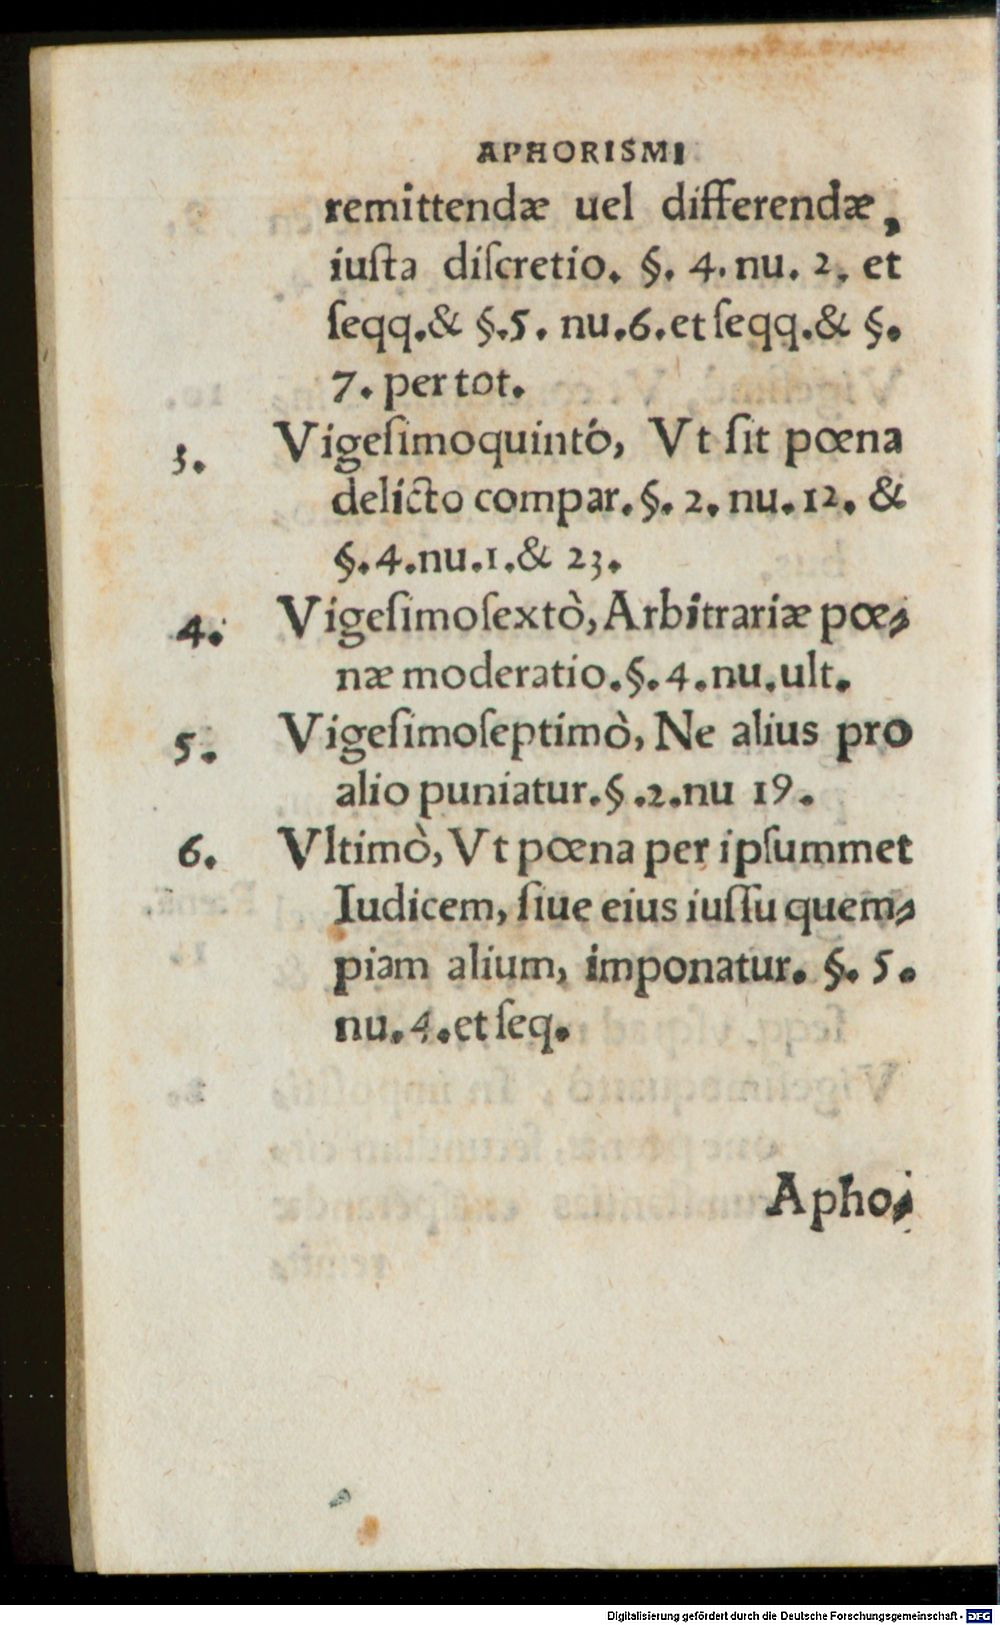 APHORISMI
remittendæ uel differendæ,
iuſta diſcretio. §. 4. nu. 2. et
ſeqq.& §.5. nu.6.et ſeqq.& §.
7. per tot.
3. Vigeſimoquintó, Vt ſit pœna
delicto compar.§. 2. nu. 12. &
§.4.nu.1.& 23.
4. Vigeſimoſextò, Arbitrariæ pœ⸗
næ moderatio.§.4.nu.ult.
5. Vigeſimoſeptimò, Ne alius pro
alio puniatur.§.2.nu 19.
6. Vltimò, Vt pœna per ipſummet
Iudicem, ſiue eius iuſſu quem⸗
piam alium, imponatur. §. 5.
nu.4.et ſeq.
Apho⸗
Digitalisierung gefördert durch die Deutsche Forschungsgemeinschaft - DFG